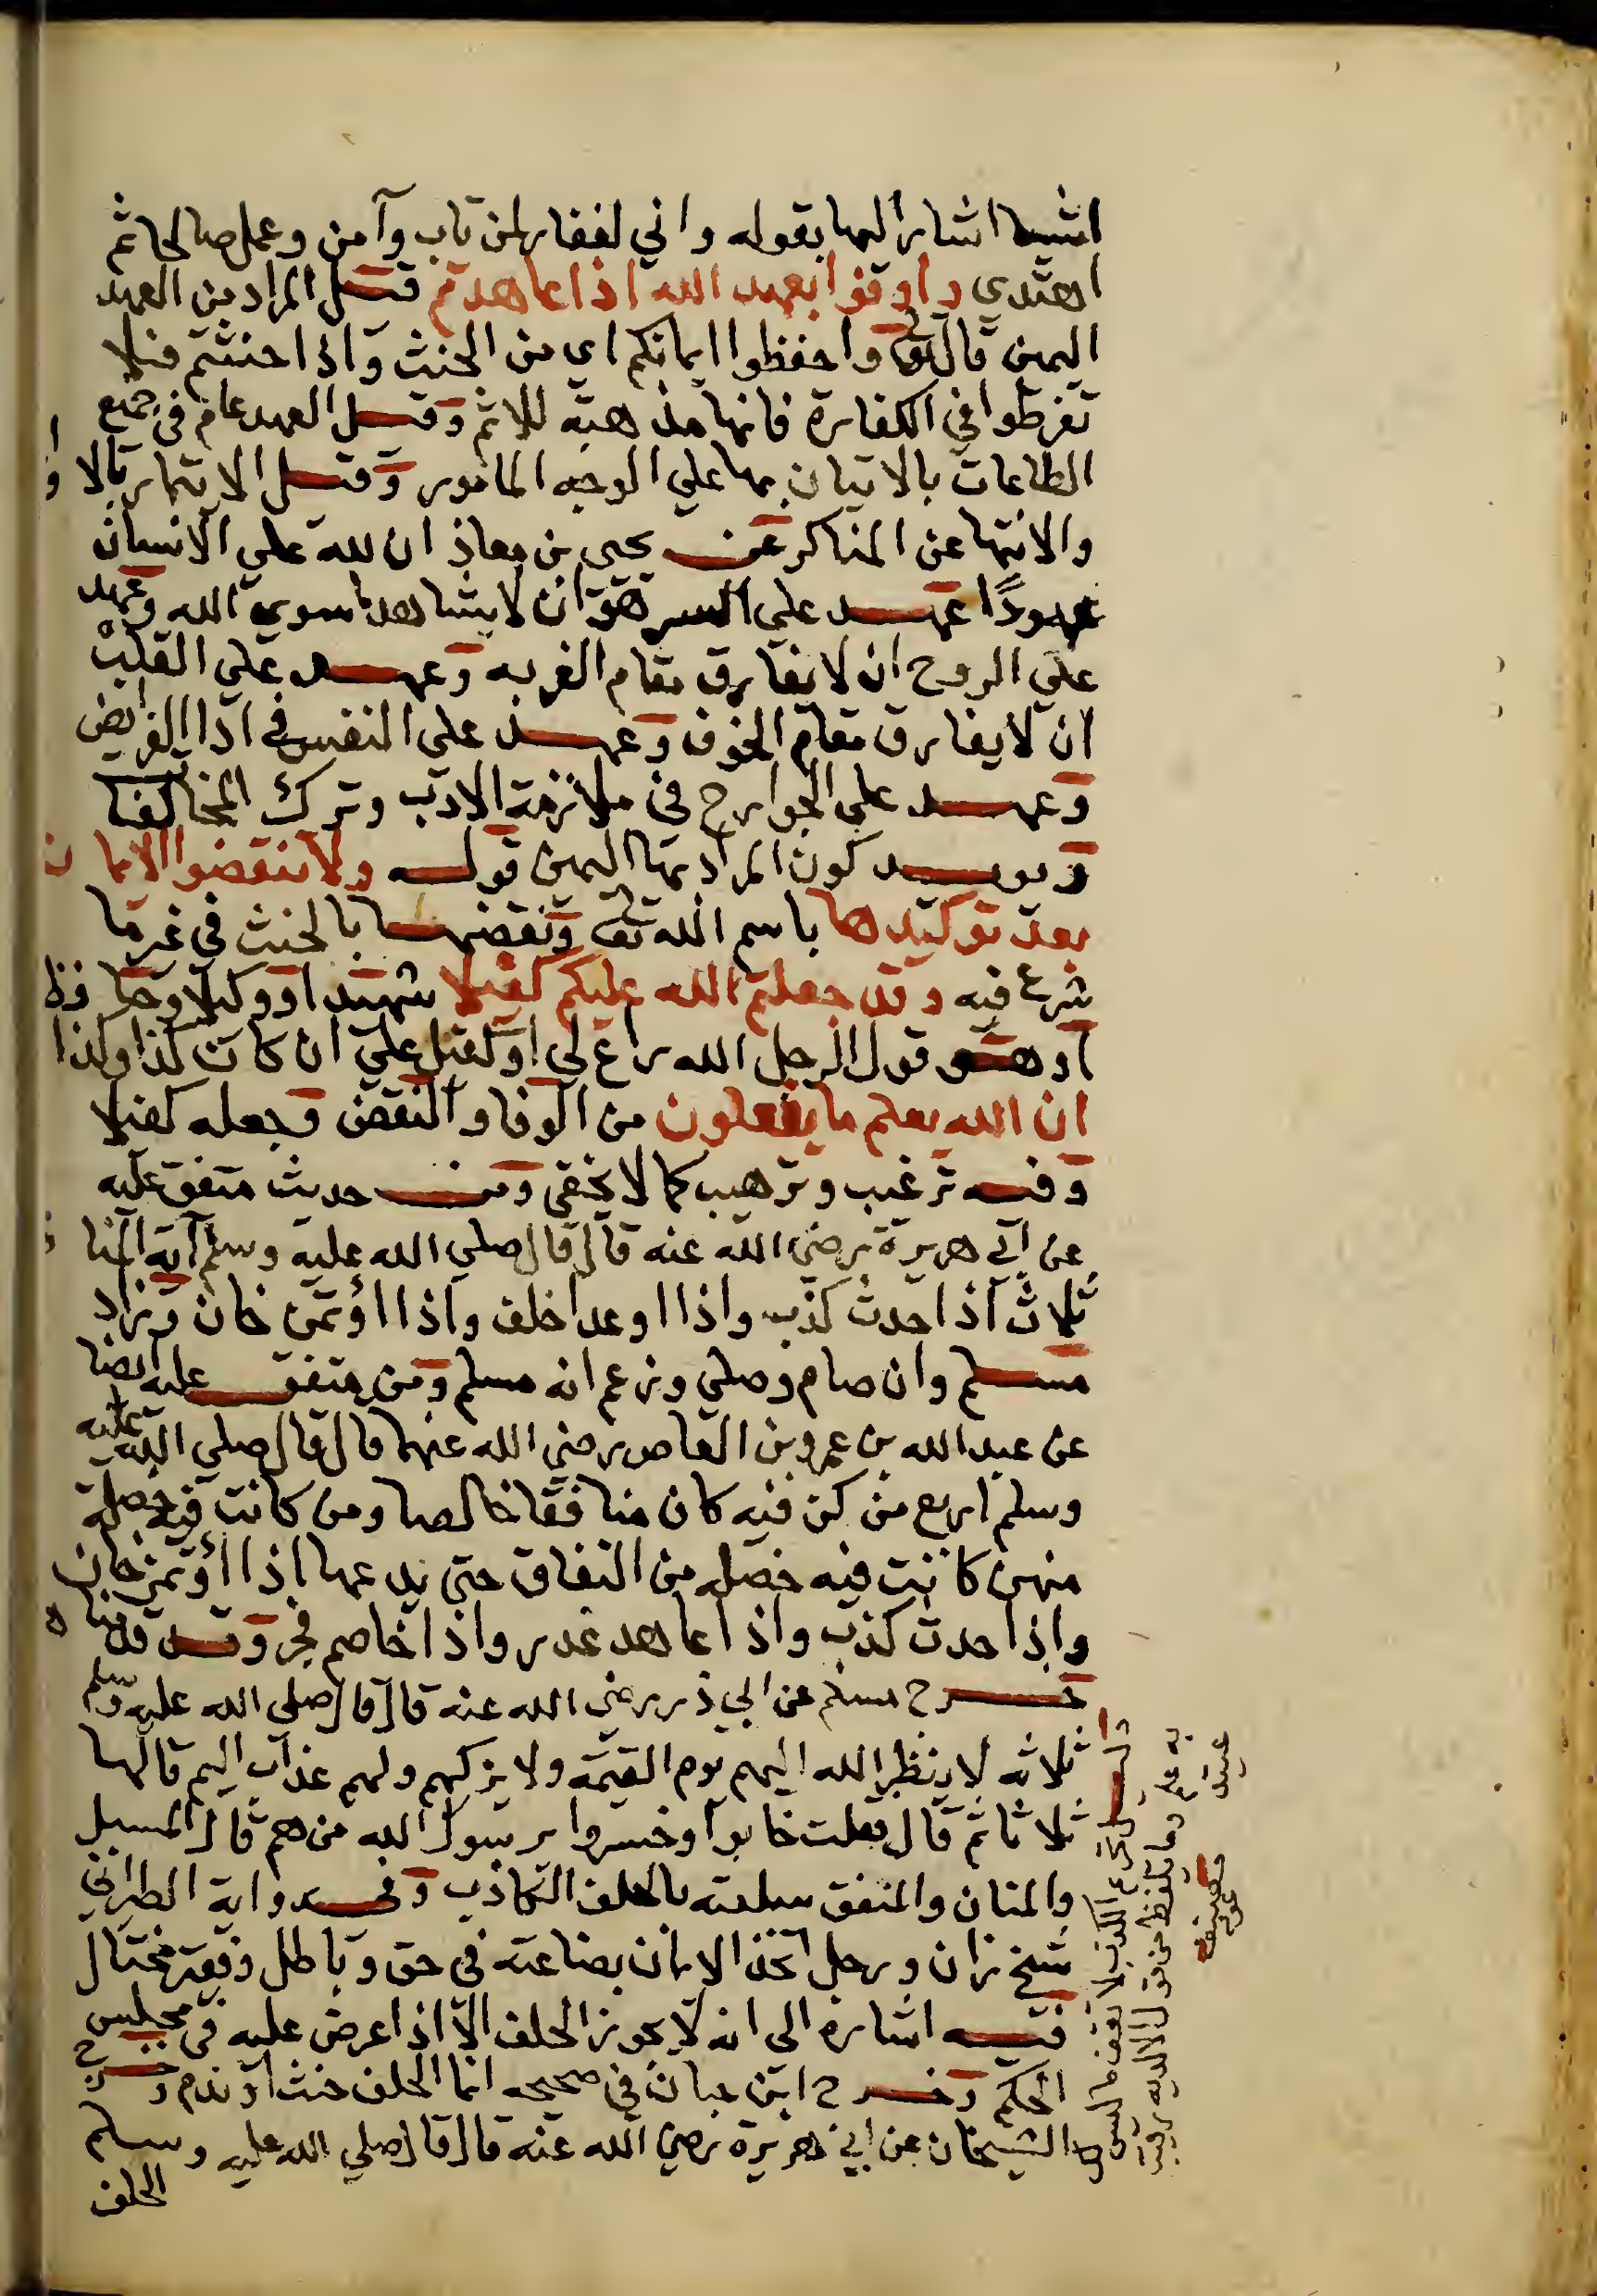 اشيا اشار اليها بقوله واني لغفار لمن تاب وآمن وعمل صالحا ثم
اهتدي واوفوا بعهد الله اذا عاهدتم قيل المراد من العهد
اليمين قال تع واحفظوا ايمانكم اي من الحنث واذا حنثتم فلا
تفرطوا في الكفارة فانها مذهبة للاثم وقيل العهد عام في جميع
الطاعات بالاتيان بها علي الوجه المامور وقيل الايتمار بالاوا
والانتها عن المناكر عن يحيى بن معاذ ان لله علي الانسان
عهودًا عهد علي السر هو ان لا يشاهد ما سوي الله وعهد
علي الروح ان لا يفارق مقام القربه وعهد علي القلب
ان لا يفارق مقام الخوف وعهد علي النفس في اداا الفرايض
وعهد علي الجوارح في ملازمة الادب وترك المخالفا
ويويد كون المراد بها اليمين قوله ولا تنقضوا الايمان
بعد توكيدها باسم الله تع ونقضها بالحنث في غير ما
شرع فيه وقد جعلتم الله عليكم كفيلا شهيدا ووكيلا وحافظا
او هو قول الرجل الله راع لي او كفيل علي ان كان كذا وكذا
ان الله يعلم ما يفعلون من الوفا والنقض وجعله كفيلا
وفيه ترغيب وترهيب كما لا يخفي ومن حديث متفق عليه
عن ابي هريرة رضي الله عنه قال قال صلي الله عليه وسلم آية المنا
ثلاث اذا حدث كذب واذا اوعد اخلف واذا اؤتمن خان وزاد
مسلم وان صام وصلي وزعم انه مسلم ومن متفق عليه ايضا
عن عبد الله بن عمرو بن العاص رضي الله عنهما قال قال صلي الله عليه
وسلم اربع من كن فيه كان منافقا خالصا ومن كانت فيه خصلة
منهن كانت فيه خصله من النفاق حتي يدعها اذا اؤتمن خان
واذا حدث كذب واذا عاهد غدر واذا خاصم فجر وقد قدمناه
خرج مسلم عن ابي ذر رضي الله عنه قال قال صلي الله عليه وسلم
ثلاثه لا ينظر الله اليهم يوم القيمة ولا يزكيهم ولهم عذاب اليم قالها
ثلاثا ثم قال فقلت خابوا وخسروا يرسول الله من هم قال المسبل
والمنان والمنفق سلعته بالحلف الكاذب وفي رواية الطبراني
شيخ زان ورجل اتخذ الايمان بضاعته في حق وباطل وفقير مختال
فيه اشاره الى انه لا يجوز الحلف الا اذا عرض عليه في مجلس
الحكم وخرج ابن حبان في صحيحه انما الحلف حنث او ندم وخرج
الشيخان عن ابي هريرة رضي الله عنه قال قال صلي الله عليه وسلم
الحلف